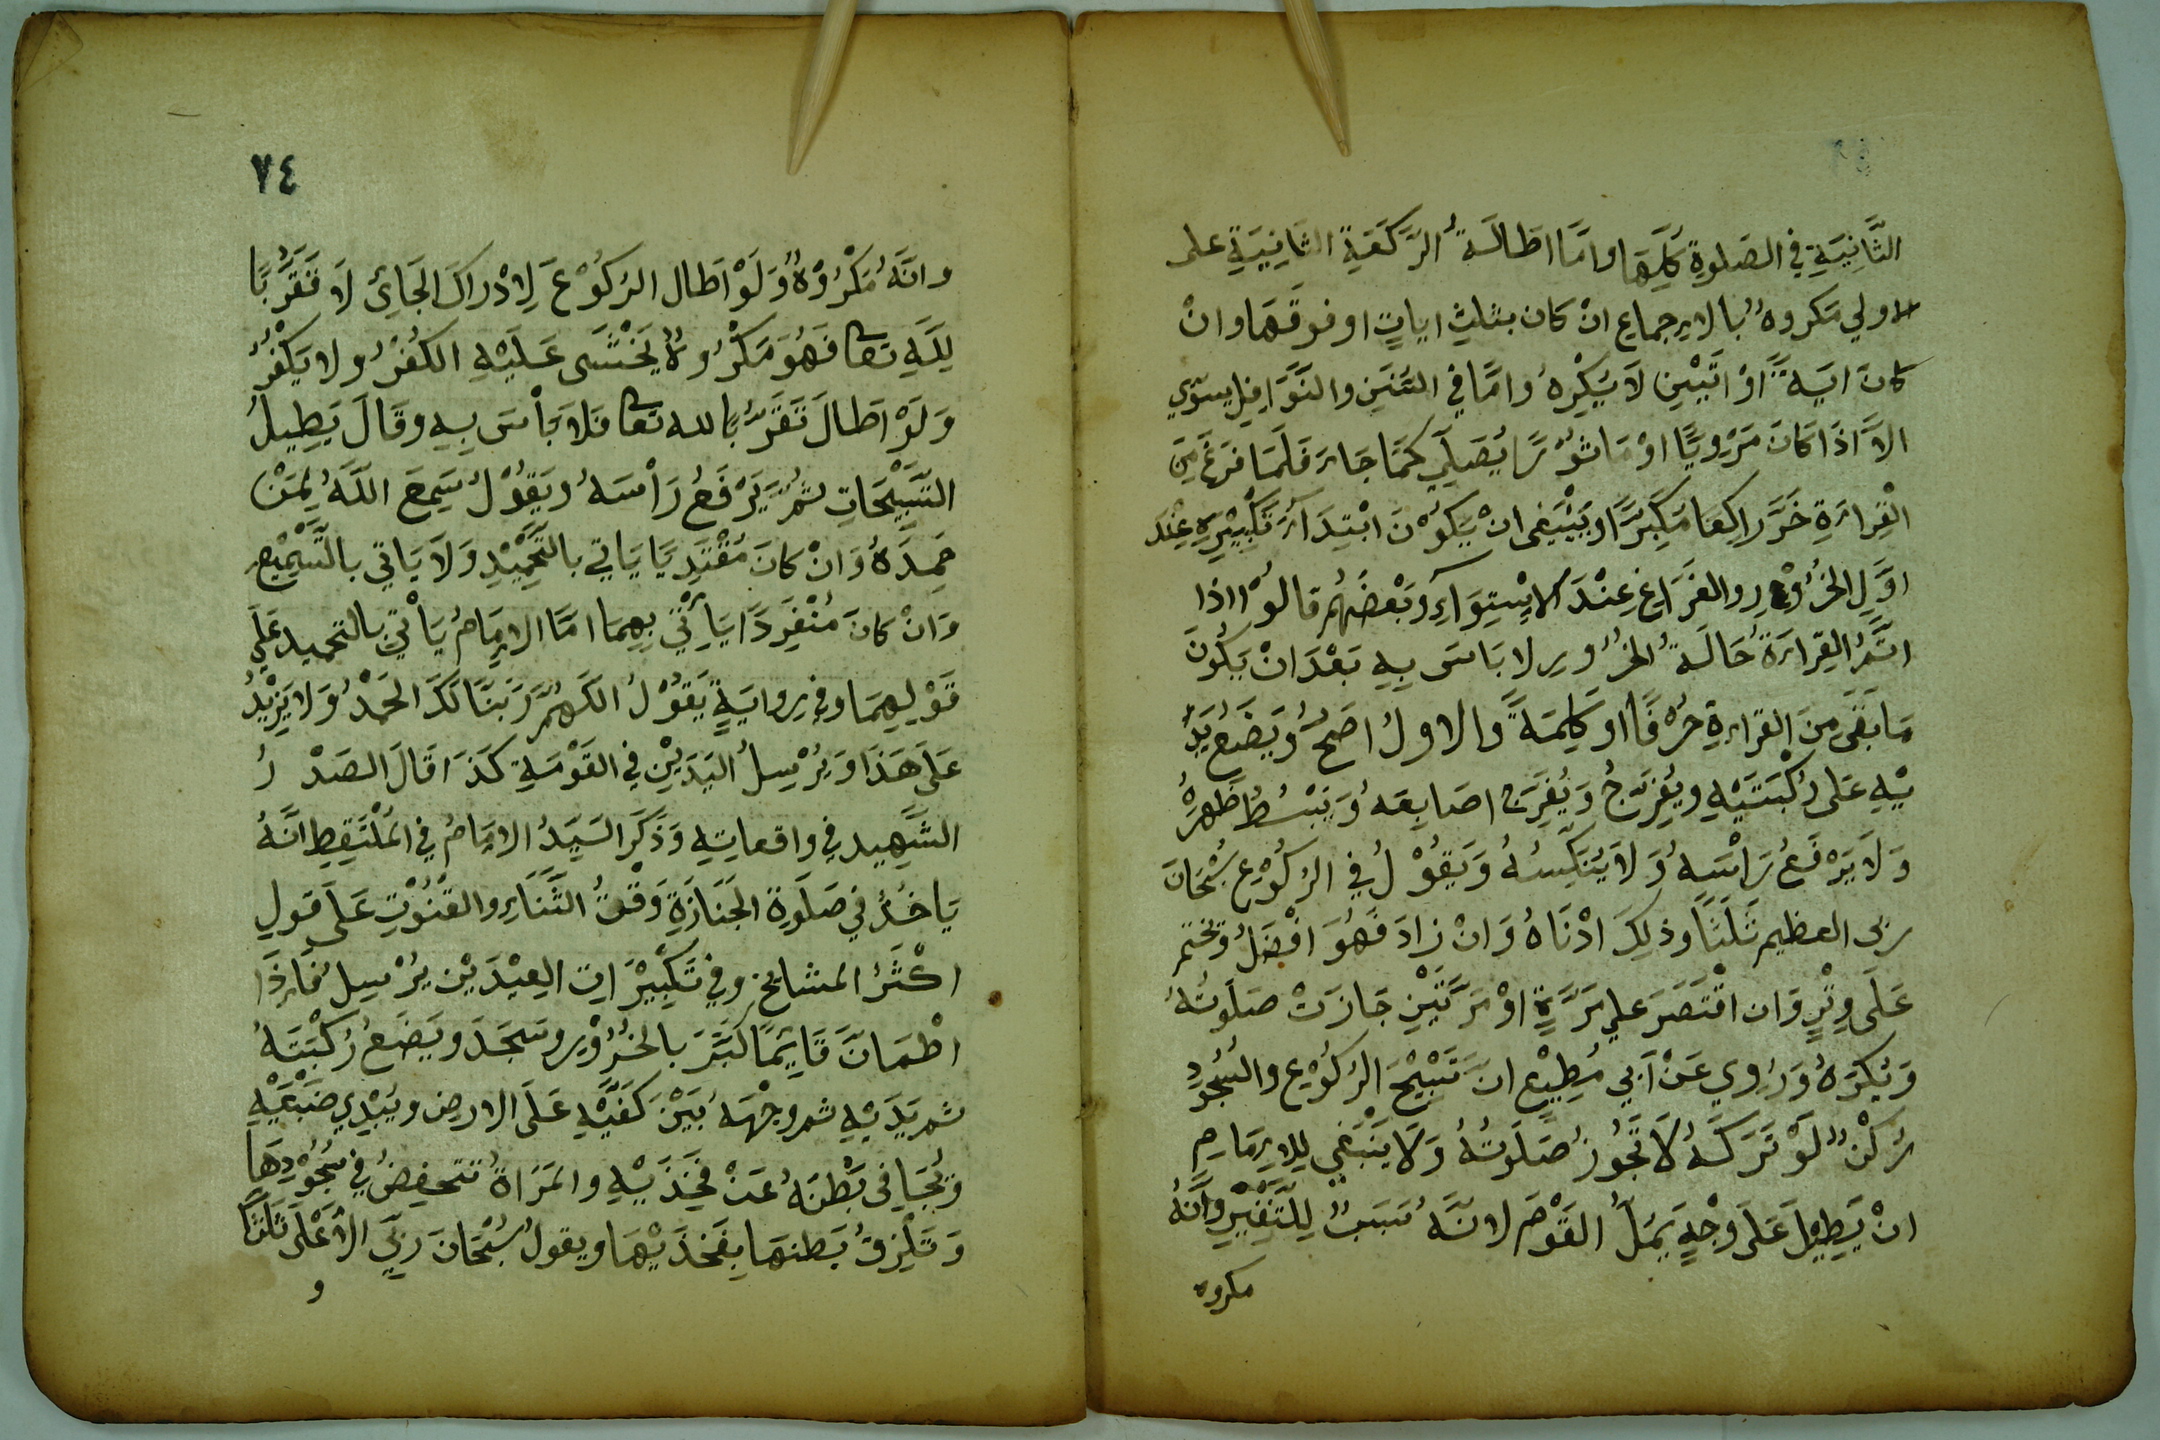 الثَّانِيَةِ فِي الصَلوةِ كُلِّهَا وامَّا اطَالَةُ الرَّكَعَةِ الثانِيَةِ على
الاولي مَكروهٌ بالاجماع انْ كان بثلثِ اياتٍ او فوقَهَا وانْ
كانَ ايَةً اوْ اتَيْينِ لَا يُكْرِهُ وامَّا في السُّنَنِ والنَّوَافِلِ يسَوّي
الاَّ اذَا كَانَ مَرْوِيًّا اوْ مَاثوْرًا يُصَلِّي كَمَا جَاءَ فَلَمَا فرَغَ مِنَ
الْقِراءَةِ خَرَّ رَاكِعَا مَكَبِّرًا ويَنْبَغِى انْ يَكوْنَ ابْتِدَاءَ تَكْبِيْرِهِ عِنْدَ
اوَّلِ الخُرُوْرِ والفَرَاغِ عِنْدَ الاسْتِوَآءِ وَبَعْضُهُمْ قالُوْا اذا
اتَمَّ القِراءَةَ حَالَةَ الخرُورِ لا بَاسَ بِهِ بَعْدَ انْ يَكُونَ
مَا بَقَى مِنَ القراءةِ حَرْفًا او كَلِمَةً والاولُ اصَحُّ وَيَضَعُ يَدَ
يْهِ عَلى رُكْبَتَيْهِ ويُفَرّجُ وَيُفَرِّجُ اصَابِعَهُ وَيَبْسُطُ ظَهرَهُ
وَلَا يَرْفَعُ رَاْسَهُ وَلَا يُنَكِّسُهُ وَيَقُوْلُ فِي الرُّكُوْعِ سُبْحَانَ
ربى العظيم ثَلَثًا وذلِكَ ادْنَاهُ وَانْ زادَ فَهُوَ افْضَلُ وَيختم
عَلَى وِتْرٍ وَان اقْتَصَرَ علي مَرَّةٍ اوْ مَرَّتَيْنِ جَازَتْ صَلَوتُهُ
وَيُكرَهُ وَرُوِي عَنْ اَبِي مُطِيْعٍ انَّ تَسْبِيْحَ الرُّكُوْعِ والسُجُوْدِ
رُكْنٌ لَوْ تَرَكَهُ لَا تَجُوزُ صَلَوتُهُ وَلَا يَنْبَغِي للامَامِ
انْ يَطِيْلَ عَلَى وَجْهٍ يَمُلُّ القَوْمَ لانَّهُ سَبَبٌ لِلتَّنْفِيْرِ وَانَّهُ
مكروه
٧٤
وانَّهُ مَكْرُوْهٌ وَلَوْ اطَال الرُكُوْعَ لِادْرَاكِ الجَائِ لَا تَقَرُّبًا
لِلَّهِ تعا فَهُوَ مَكْرُوهٌ يَخْشَى عَلَيْهِ الكُفْرُ ولا يَكْفُرُ
وَلَوْ اطَالَ تَقَرُّبًا لله تعا فَلَا بَأْسَ بِهِ وقَالَ يَطِيلُ
التَّسْبِيْحَاتِ ثمَّ يَرْفَعُ رَأْسَهُ ويَقُوْلُ سَمِعَ اللَّهُ لِمَنْ
حَمِدَهُ وَانْ كانَ مُقْتَدِيًا يَاتي بالتَّحْمِيْدِ وَلَا يَاتي بالتَّسْمِيْعِ
وَانْ كانَ مُنْفَرِدًا يَأتِي بِهِمَا امَّا الامَامُ يَأتِي بالتحميد عَلَى
قَوْلِهِمَا وفى رِوايَةٍ يَقُوْلُ اللَّهُمَّ رَبَنَّا لَكَ الحَمْدُ وَلَا يَزِيْدُ
عَلَى هَذَا وَيُرْسِلُ اليَدَيْنِ في القَوْمَةِ كَذَا قَالَ الصَدْرُ
الشَّهِيد في واقعاتِهِ وَذَكَرَ السَيّدُ الامَامُ في المُلْتَقِطِ انَّهُ
يَاخُذُ في صَلَوةِ الجَنَازَةِ وَقْتَ الثَّنَاءِ والقُنُوْتِ عَلَى قَولِ
اكْثَرِ المشايخ وفي تَكْبِيْرَاتِ العِيْدَيْن يُرْسِلُ فَاِذَا
اطْمَانَّ قَايمًا كَبَّرَ بالخرُوْرِ وسَجَدَ ويَضَعُ رُكْبَتَهُ
ثم يَدَيْهِ ثم وجْهَهُ بَيْنَ كَفَّيْهِ عَلَى الارضِ ويُبْدِي ضَبْعَيْهِ
وَيُجَافى بَطْنَهُ عَنْ فَخِذَيْهِ والمَرَاةُ تنخفِضُ في سُجُوْدِهَا
وَتَلْزِقُ بَطنهَا بِفَخِذَيْهَا ويقولُ سُبْحَانَ رَبِّيَ الاَعْلَى ثَلَثًا
و